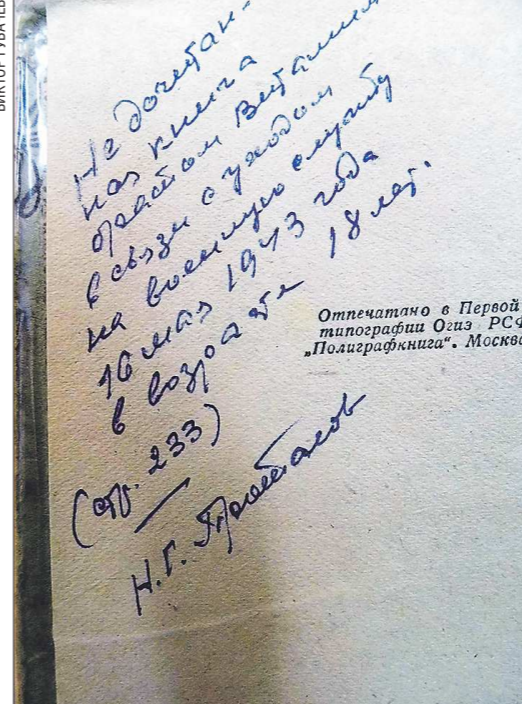 Не дочитан-
ная книга
братом Виталием
в связи с уходом
на военную службу
16 мая 1943 года
в возрасте 18 лет.
(стр. 233)
Н.Г.
Отпечатано в Первой
типографии Огиз РСФ
„Полиграфкнига“. Москва